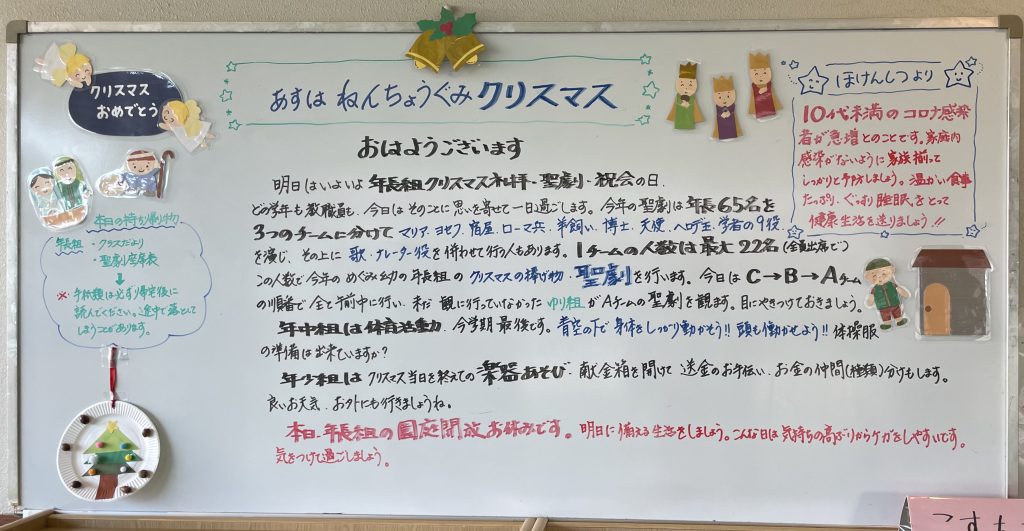 クリスマス
おめでとう
あすは ねんちょうぐみ クリスマス
ほけんしつより
10代未満のコロナ感染
者が急増とのことです。家庭内
感染がないように家族揃って
しっかりと予防しましょう。温かい食事
たっぷり、ぐっすり睡眠をとって
健康生活を送りましょう!!
おはようございます
明日はいよいよ 年長組クリスマス礼拝・聖劇・祝会の日。
どの学年も教職員も、今日はそのことに思いを寄せて一日過ごします。今年の聖劇は年長65名を
3つのチームに分けて マリア、ヨセフ、宿屋、ローマ兵、羊飼い、博士、天使、ヘロデ王、学者の9役
を演じ、その上に 歌・ナレーター役を併わせて行う人もあります。1チームの人数は最大22名(全員出席で)
この人数で今年のめぐみ幼の年長組の クリスマスの捧げ物・聖劇を行います。今日は C→B→Aチーム
の順番で全て午前中に行い、未だ 観に行っていなかった ゆり組 がAチームの聖劇を観ます。目にやきつけておきましょう。
年中組は体育活動 今学期最後です。青空の下で身体をしっかり動かそう!! 頭も働かせよう!! 体操服
の準備は出来ていますか?
年少組は クリスマス当日を終えての 楽器あそび・献金箱を開けて 送金のお手伝い、お金の仲間(種類)分けもします。
良いお天気、お外にも行きましょうね。
本日、年長組の園庭開放お休みです。明日に備える生活をしましょう。こんな日は気持ちの高ぶりからケガをしやすいです。
気をつけて過ごしましょう。
本日の持ち帰り物
年長組 ・クラスだより
・聖劇座席表
↓
※ 手紙類は必ず帰宅後に
読んでください。途中で落として
しまうことがあります。
こすも